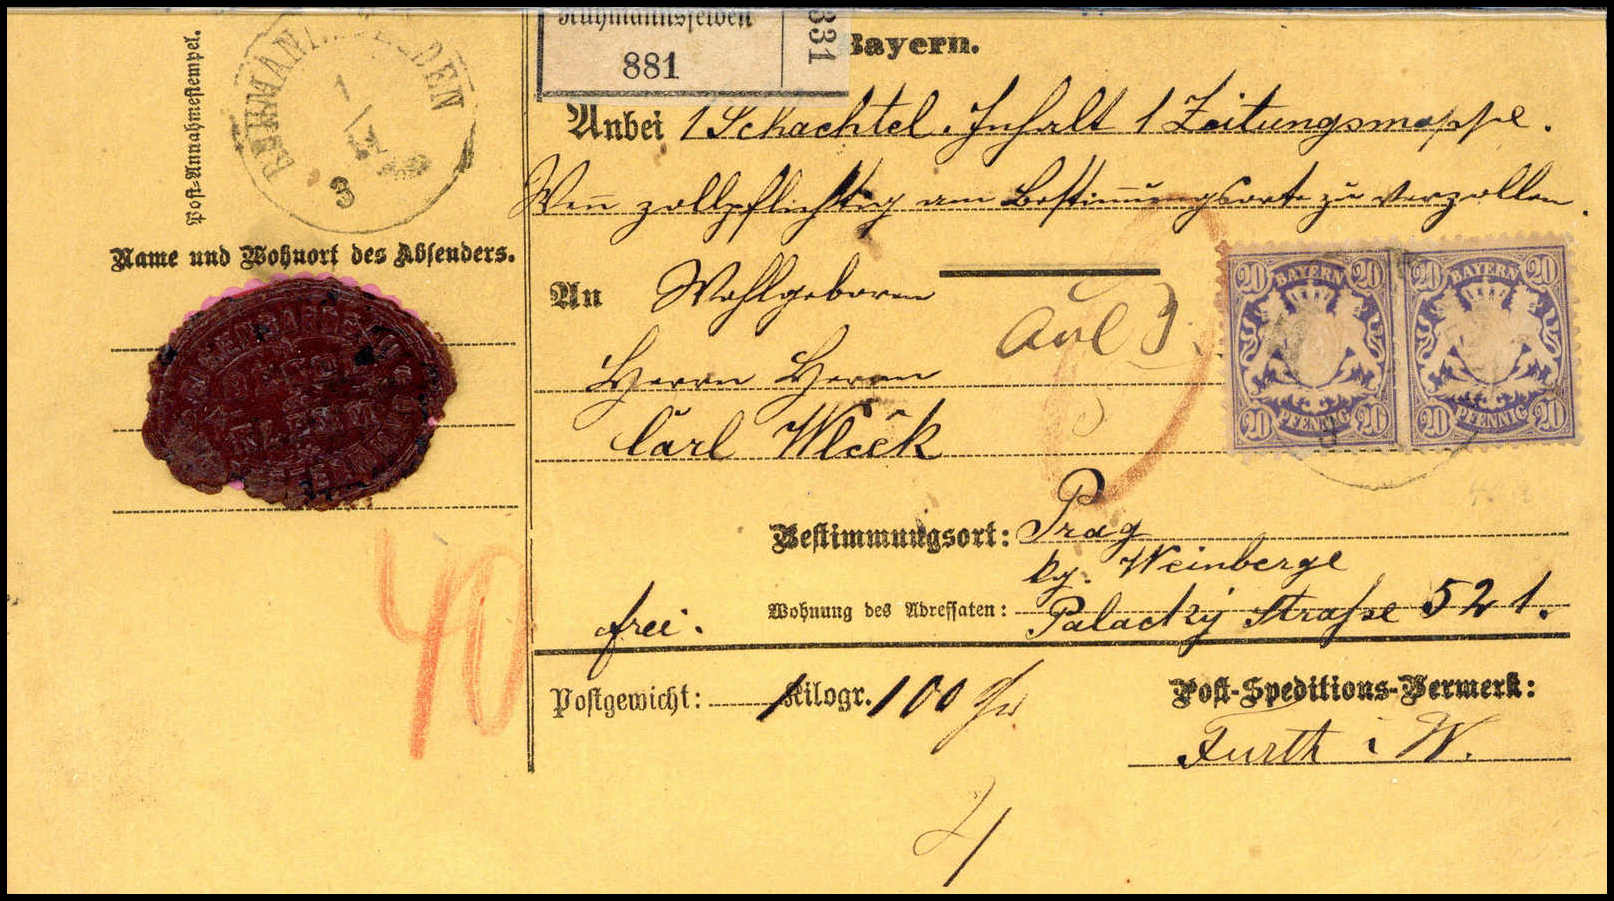 Post-Annahmestempel.
1
3
Ruhmannsfelden
881
331
Bayern.
Anbei 1 Schachtel. Inhalt 1 Zeitungsmappe.
Wen̄ zollpflichtig am Bestim̄ungsorte zu verzollen.
Name und Wohnort des Absenders.
An Wohlgeboren
Herrn Herrn
Carl Wlček
Avl
20 BAYERN 20
20 PFENNIG 20
20 BAYERN 20
20 PFENNIG 20
Bestimmungsort: Prag
kg. Weinberge
Wohnung des Adressaten: Palacky Straße 521.
frei.
40
Postgewicht: 1 Kilogr. 100 Gr
Post-Speditions-Vermerk:
Furth i W.
4